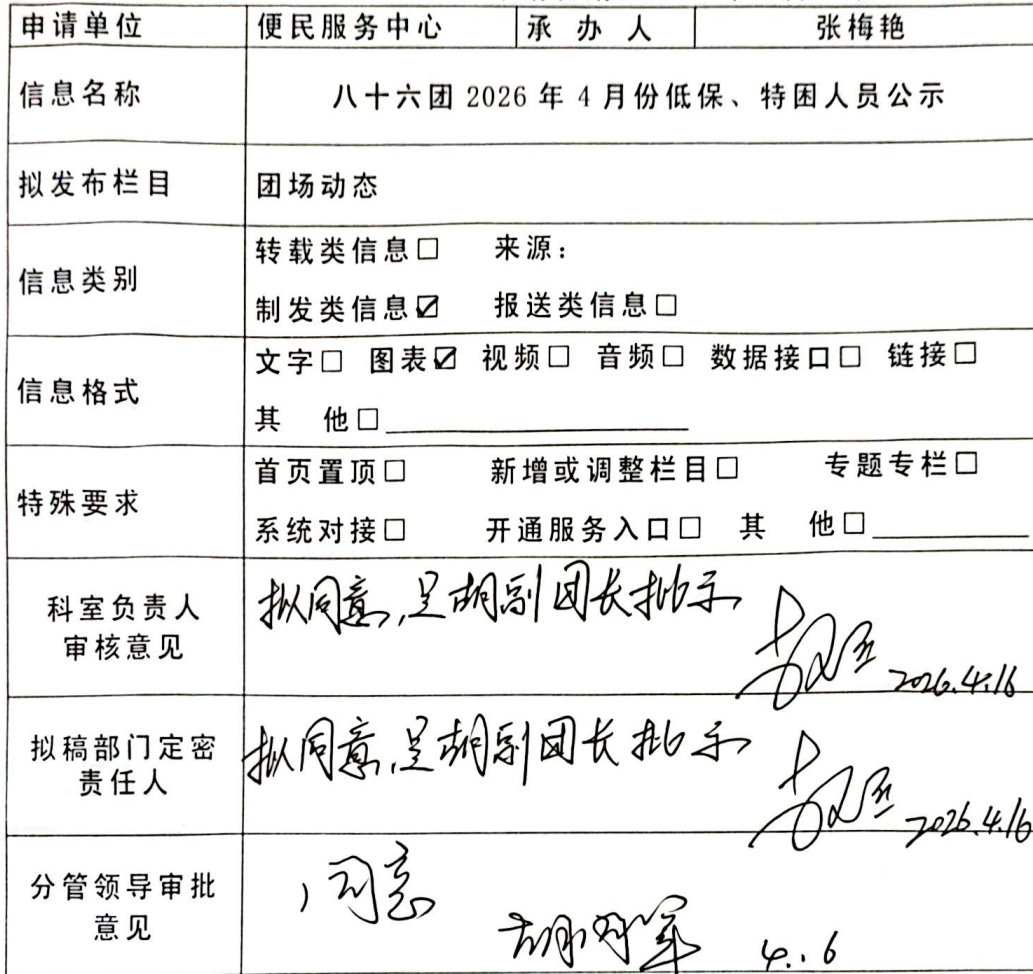 申请单位 便民服务中心 承办人 张梅艳
信息名称 八十六团 2026 年 4 月份低保、特困人员公示
拟发布栏目 团场动态
信息类别 转载类信息□ 来源：
制发类信息☑ 报送类信息□
信息格式 文字□ 图表☑ 视频□ 音频□ 数据接口□ 链接□
其 他□
特殊要求 首页置顶□ 新增或调整栏目□ 专题专栏□
系统对接□ 开通服务入口□ 其 他□
科室负责人
审核意见
拟同意，呈胡副团长批示
2026.4.16
拟稿部门定密
责任人
拟同意，呈胡副团长批示
2026.4.16
分管领导审批
意见
同意